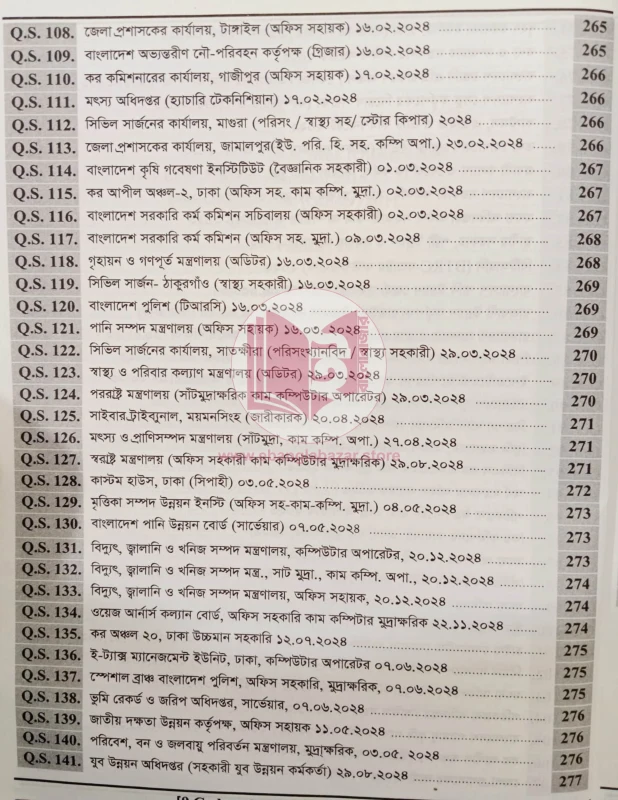 Q.S. 108. জেলা প্রশাসকের কার্যালয়, টাঙ্গাইল (অফিস সহায়ক) ১৬.০২.২০২৪ 265
Q.S. 109. বাংলাদেশ অভ্যন্তরীণ নৌ-পরিবহন কর্তৃপক্ষ (গ্রিজার) ১৬.০২.২০২৪ 265
Q.S. 110. কর কমিশনারের কার্যালয়, গাজীপুর (অফিস সহায়ক) ১৭.০২.২০২৪ 266
Q.S. 111. মৎস্য অধিদপ্তর (হ্যাচারি টেকনিশিয়ান) ১৭.০২.২০২৪ 266
Q.S. 112. সিভিল সার্জনের কার্যালয়, মাগুরা (পরিসং / স্বাস্থ্য সহ/ স্টোর কিপার) ২০২৪ 266
Q.S. 113. জেলা প্রশাসকের কার্যালয়, জামালপুর(ইউ. পরি. হি. সহ. কম্পি অপা.) ২৩.০২.২০২৪ 266
Q.S. 114. বাংলাদেশ কৃষি গবেষণা ইনস্টিটিউট (বৈজ্ঞানিক সহকারী) ০১.০৩.২০২৪ 267
Q.S. 115. কর আপীল অঞ্চল-২, ঢাকা (অফিস সহ. কাম কম্পি. মুদ্রা.) ০২.০৩.২০২৪ 267
Q.S. 116. বাংলাদেশ সরকারি কর্ম কমিশন সচিবালয় (অফিস সহকারী) ০২.০৩.২০২৪ 267
Q.S. 117. বাংলাদেশ সরকারি কর্ম কমিশন (অফিস সহ. মুদ্রা.) ০৯.০৩.২০২৪ 268
Q.S. 118. গৃহায়ন ও গণপূর্ত মন্ত্রণালয় (অডিটর) ১৬.০৩.২০২৪ 268
Q.S. 119. সিভিল সার্জন- ঠাকুরগাঁও (স্বাস্থ্য সহকারী) ১৬.০৩.২০২৪ 269
Q.S. 120. বাংলাদেশ পুলিশ (টিআরসি) ১৬.০৩.২০২৪ 269
Q.S. 121. পানি সম্পদ মন্ত্রণালয় (অফিস সহায়ক) ১৬.০৩. ২০২৪ 269
Q.S. 122. সিভিল সার্জনের কার্যালয়, সাতক্ষীরা (পরিসংখ্যানবিদ / স্বাস্থ্য সহকারী) ২৯.০৩.২০২৪ 270
Q.S. 123. স্বাস্থ্য ও পরিবার কল্যাণ মন্ত্রণালয় (অডিটর) ২৯.০৩.২০২৪ 270
Q.S. 124. পররাষ্ট্র মন্ত্রণালয় (সাঁটমুদ্রাক্ষরিক কাম কম্পিউটার অপারেটর) ২৯.০৩.২০২৪ 270
Q.S. 125. সাইবার ট্রাইব্যুনাল, ময়মনসিংহ (জারীকারক) ২০.০৪.২০২৪ 271
Q.S. 126. মৎস্য ও প্রাণিসম্পদ মন্ত্রণালয় (সাঁটমুদ্রা, কাম কম্পি. অপা.) ২৭.০৪.২০২৪ 271
Q.S. 127. স্বরাষ্ট্র মন্ত্রণালয় (অফিস সহকারী কাম কম্পিউটার মুদ্রাক্ষরিক) ২৯.০৮.২০২৪ 271
Q.S. 128. কাস্টম হাউস, ঢাকা (সিপাহী) ০৩.০৫.২০২৪ 272
Q.S. 129. মৃত্তিকা সম্পদ উন্নয়ন ইনস্টি (অফিস সহ-কাম-কম্পি. মুদ্রা.) ০৪.০৫.২০২৪ 273
Q.S. 130. বাংলাদেশ পানি উন্নয়ন বোর্ড (সার্ভেয়ার) ০৭.০৫.২০২৪ 273
Q.S. 131. বিদ্যুৎ, জ্বালানি ও খনিজ সম্পদ মন্ত্রণালয়, কম্পিউটার অপারেটর, ২০.১২.২০২৪ 273
Q.S. 132. বিদ্যুৎ, জ্বালানি ও খনিজ সম্পদ মন্ত্র., সাট মুদ্রা., কাম কম্পি. অপা., ২০.১২.২০২৪ 274
Q.S. 133. বিদ্যুৎ, জ্বালানি ও খনিজ সম্পদ মন্ত্রণালয়, অফিস সহায়ক, ২০.১২.২০২৪ 274
Q.S. 134. ওয়েজ আর্নার্স কল্যান বোর্ড, অফিস সহকারি কাম কম্পিটার মুদ্রাক্ষরিক ২২.১১.২০২৪ 274
Q.S. 135. কর অঞ্চল ২০, ঢাকা উচ্চমান সহকারি ১২.০৭.২০২৪ 275
Q.S. 136. ই-ট্যাক্স ম্যানেজমেন্ট ইউনিট, ঢাকা, কম্পিউটার অপারেটর ০৭.০৬.২০২৪ 275
Q.S. 137. স্পেশাল ব্রাঞ্চ বাংলাদেশ পুলিশ, অফিস সহকারি, মুদ্রাক্ষরিক, ০৭.০৬.২০২৪ 275
Q.S. 138. ভুমি রেকর্ড ও জরিপ অধিদপ্তর, সার্ভেয়ার, ০৭.০৬.২০২৪ 276
Q.S. 139. জাতীয় দক্ষতা উন্নয়ন কর্তৃপক্ষ, অফিস সহায়ক ১১.০৫.২০২৪ 276
Q.S. 140. পরিবেশ, বন ও জলবায়ু পরিবর্তন মন্ত্রণালয়, মুদ্রাক্ষরিক, ০৩.০৫. ২০২৪ 276
Q.S. 141. যুব উন্নয়ন অধিদপ্তর (সহকারী যুব উন্নয়ন কর্মকর্তা) ২৯.০৮.২০২৪ 277